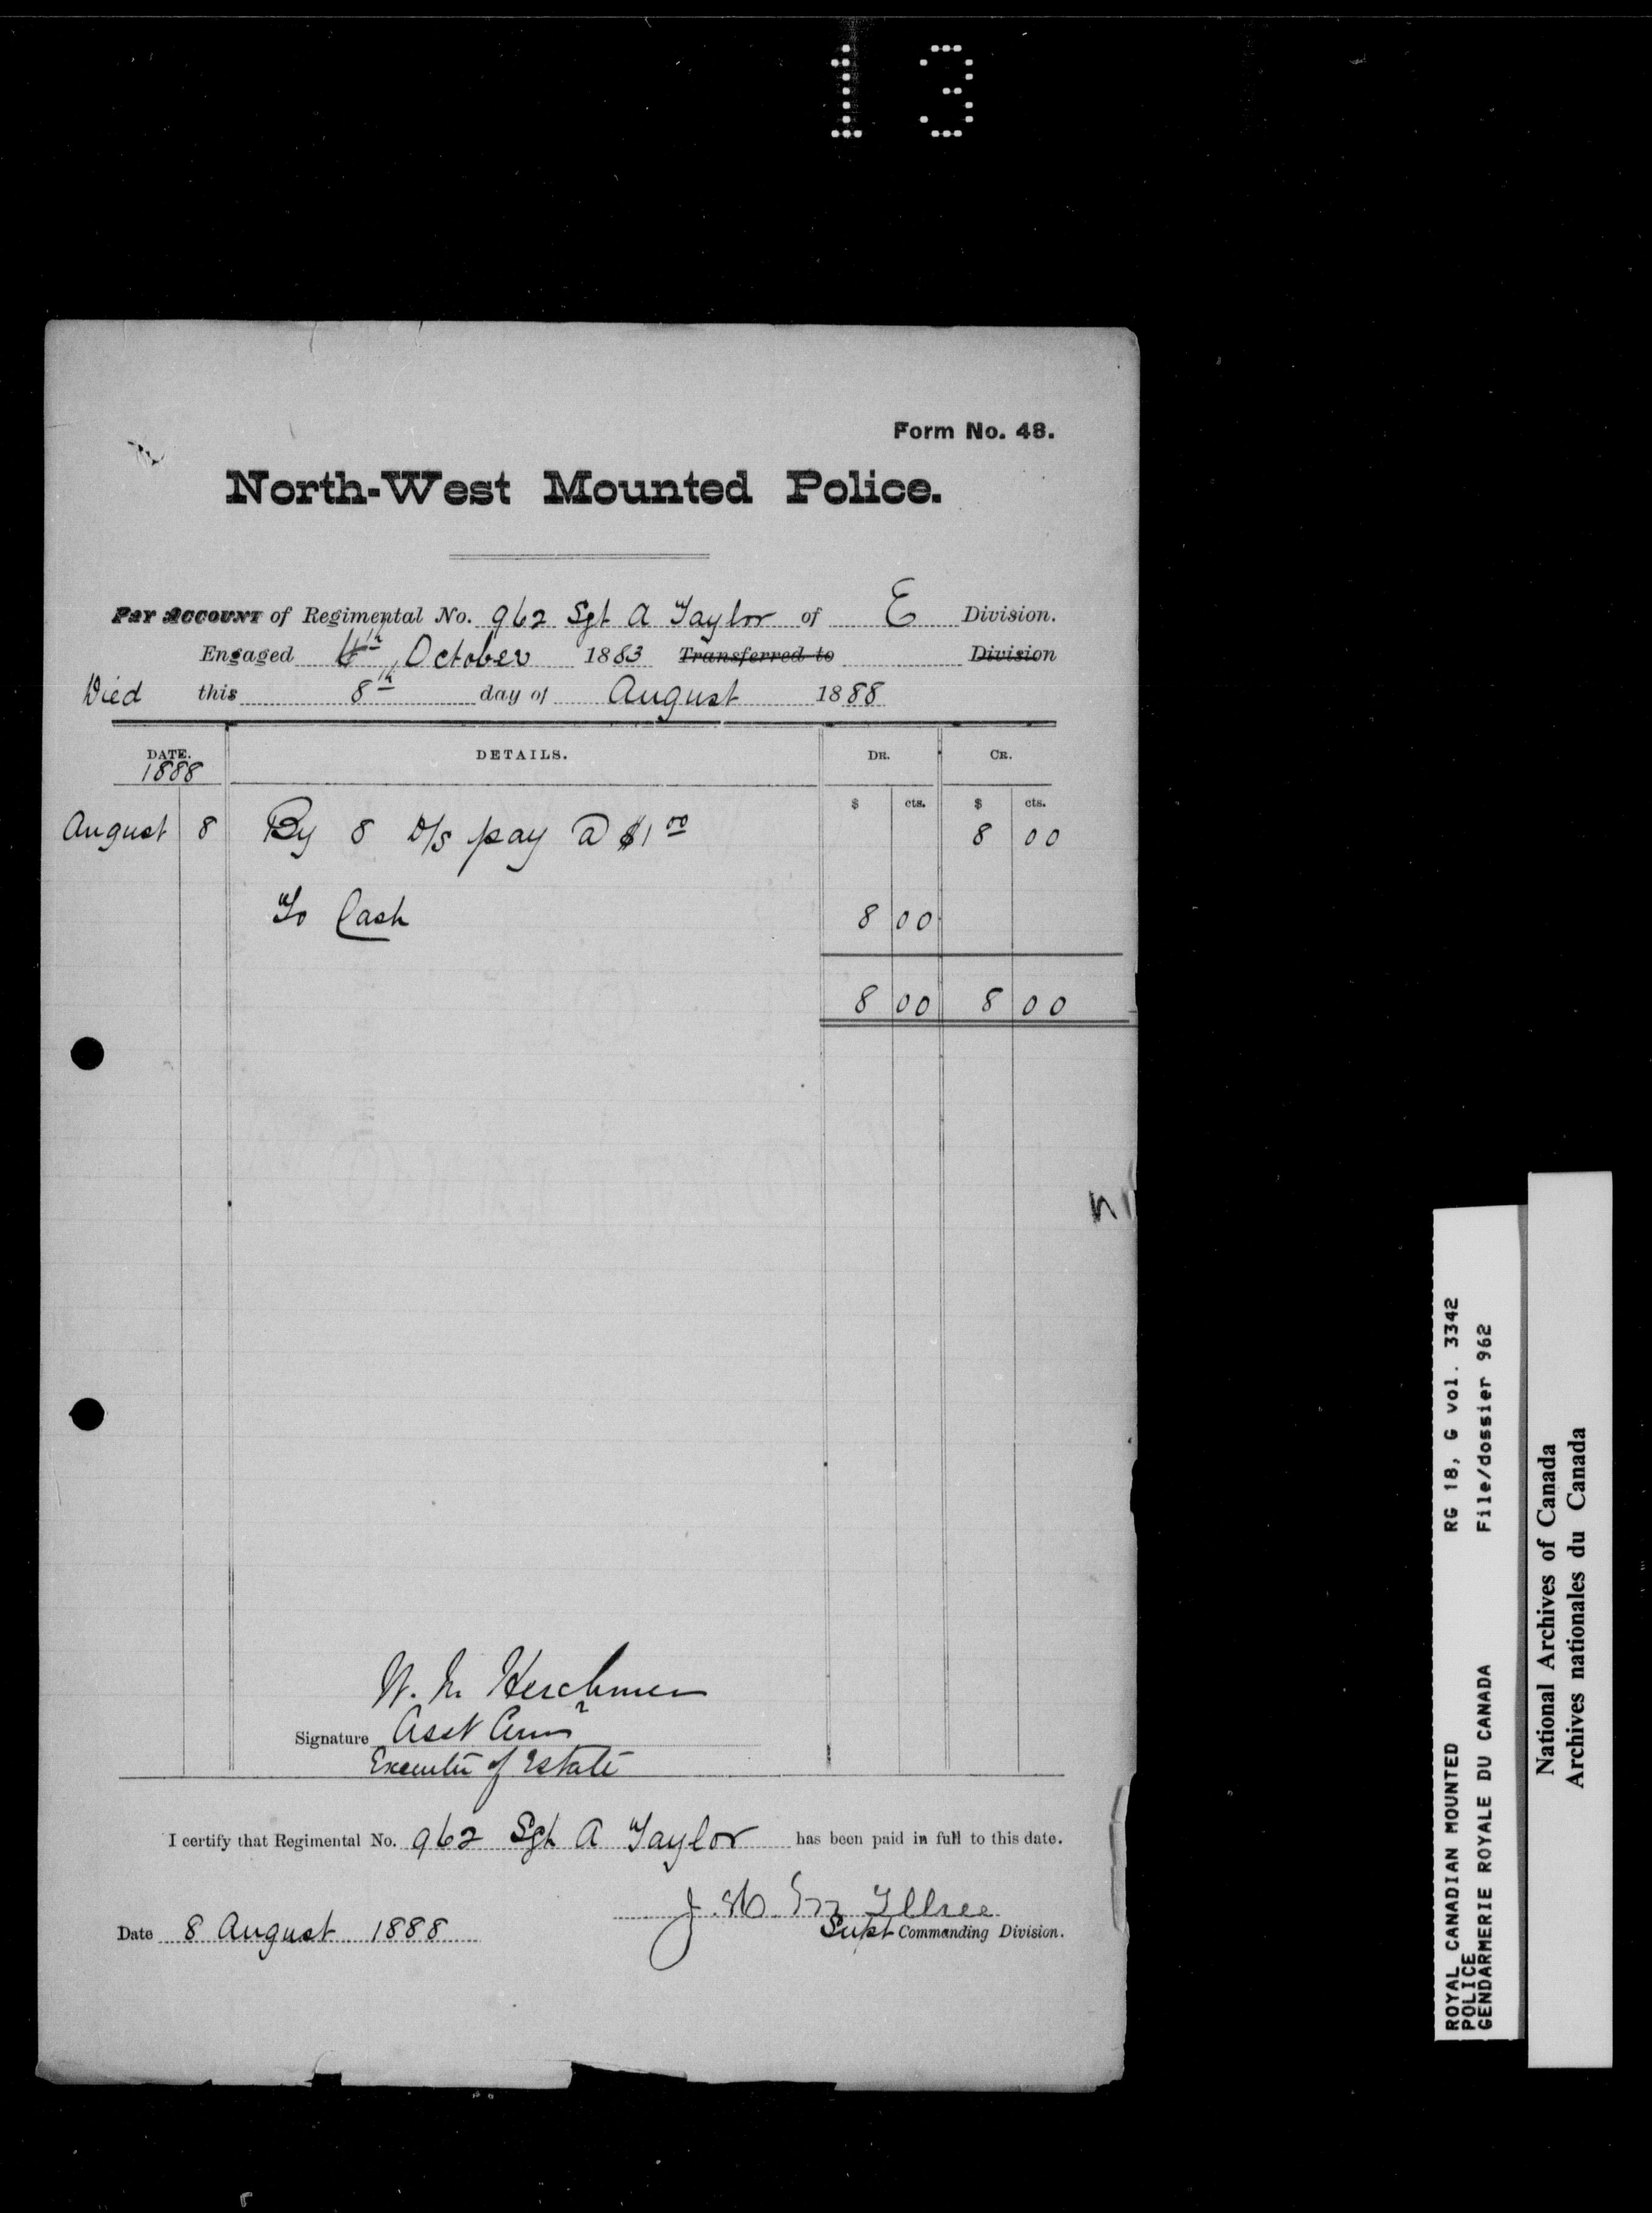 13
Form No. 48.
North-West Mounted Police.
Pay Account of Regimental No. 962 Sgt A Taylor of E Division.
Engaged October 1883 Transferred to Division
Died this 8th day of August 1888
DATE. DETAILS. DR. CR.
1888
$ cts. $ cts.
August 8 By 8 D/s pay @ $1 00 8 00
To Cash 8 00
8 00 8 00
W. M. Herchmer
Signature Asst Comr
Executor of Estate
I certify that Regimental No. 962 Sgt A Taylor has been paid in full to this date.
Date 8 August 1888
Supt Commanding Division.
ROYAL CANADIAN MOUNTED RG 18, G vol. 3342
POLICE
GENDARMERIE ROYALE DU CANADA File/dossier 962
National Archives of Canada
Archives nationales du Canada